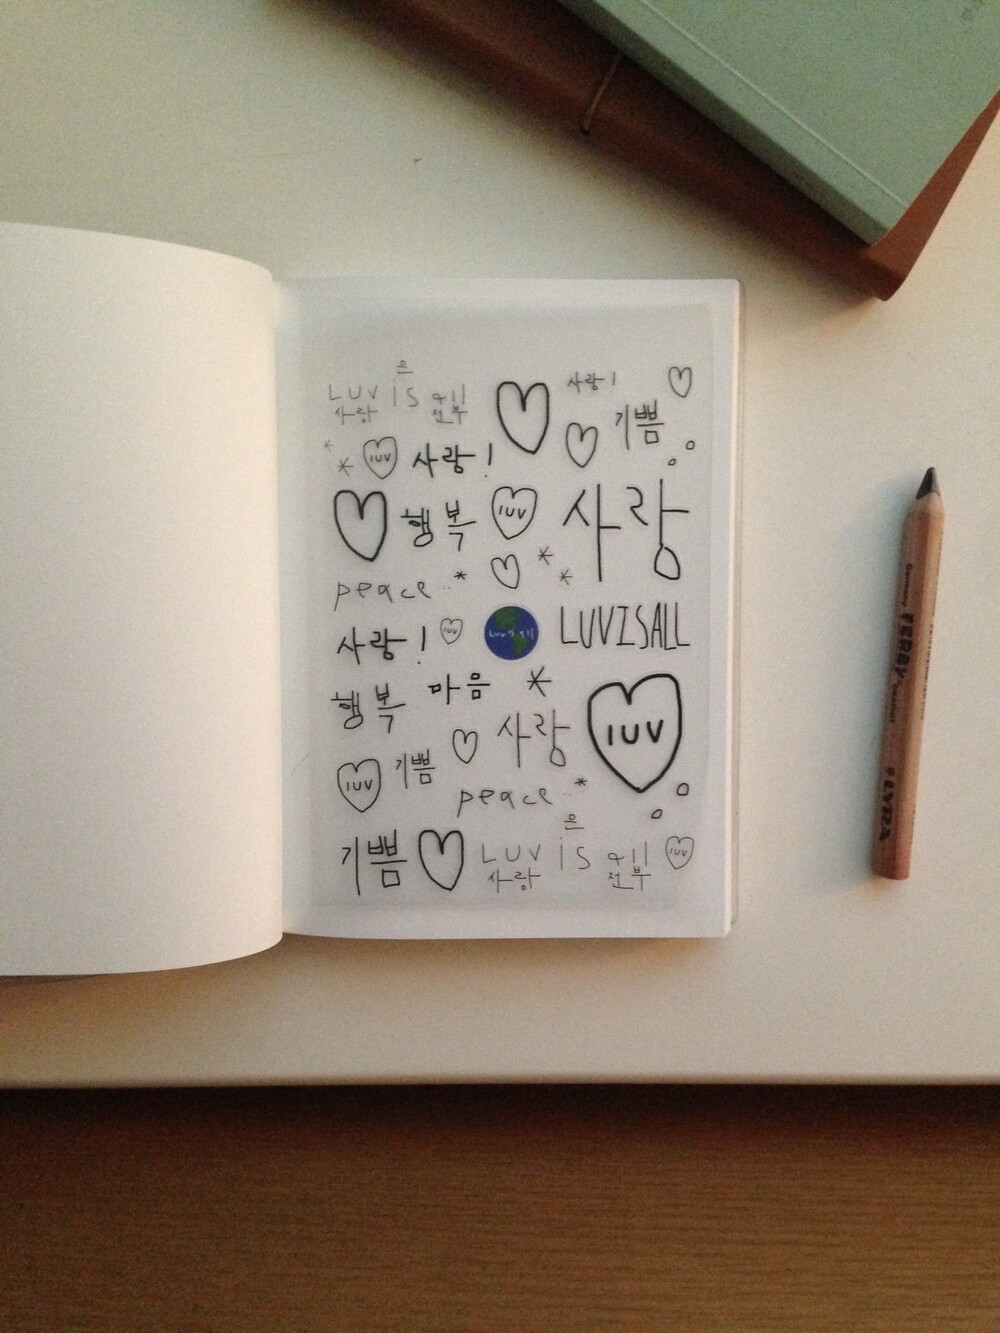 은
LUV is all
사랑 전부
사랑!
기쁨
luv
사랑!
행복
luv
사랑
peace..
사랑!
luv
Luv is all
LUVISALL
행복
마음
사랑
luv
luv
기쁨
peace..
은
기쁨
LUV is all
사랑 전부
luv
Germany
FERBY
LYRA